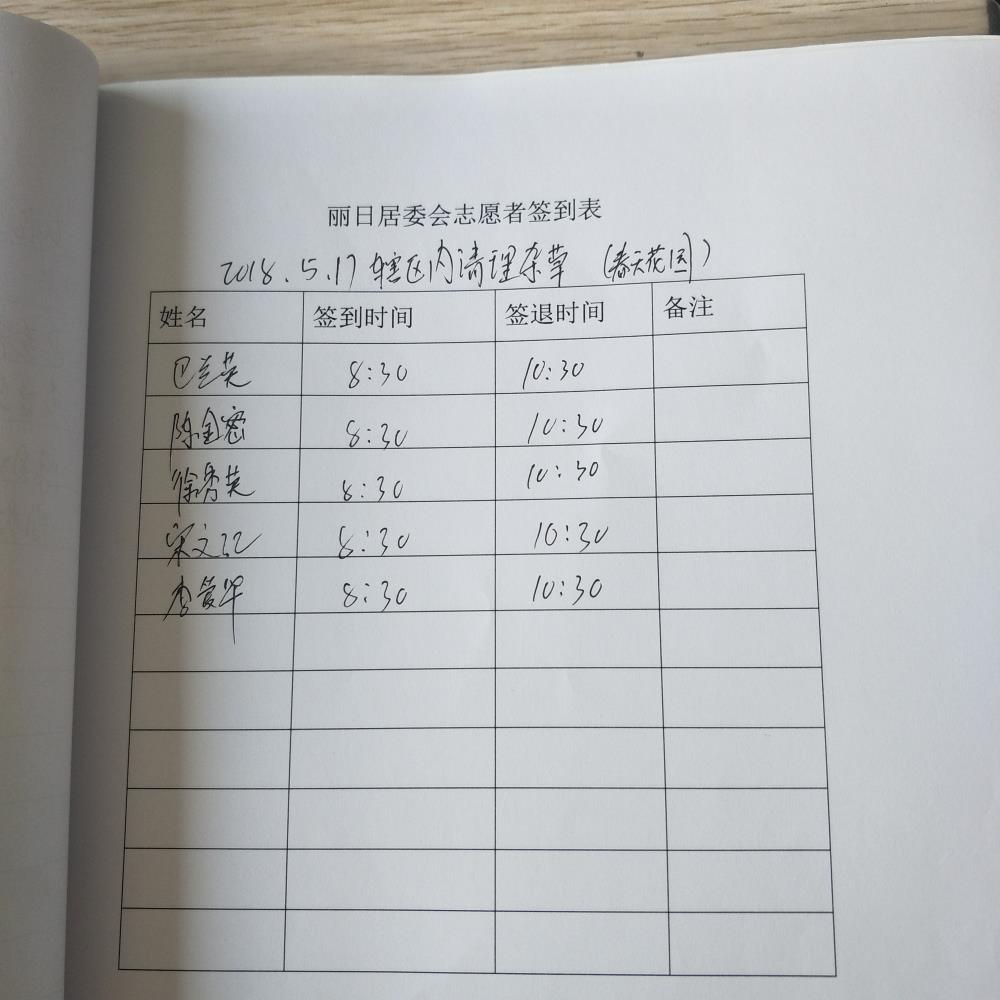 丽日居委会志愿者签到表
2018.5.17 辖区内清理杂草 (春天花园)
姓名 签到时间 签退时间 备注
巴兰英 8:30 10:30
陈金密 8:30 10:30
徐秀英 8:30 10:30
宋文 8:30 10:30
李爱华 8:30 10:30